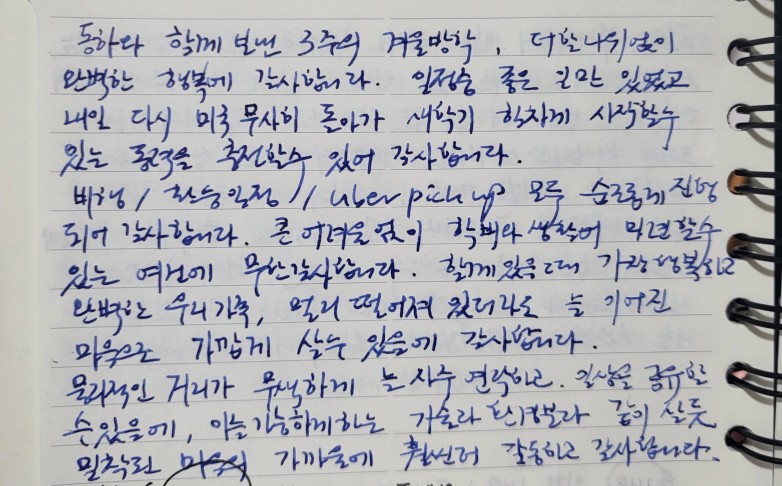 동하와 함께 보낸 3주의 겨울방학, 더할나위없이
완벽한 행복에 감사합니다. 일정중 좋은 일만 있었고
내일 다시 미국 무사히 돌아가 새학기 힘차게 시작할수
있는 동력을 충전할수 있어 감사합니다.
비행 / 환승일정 / uber pick up 모두 순조롭게 진행
되어 감사합니다. 큰 어려움 없이 학비와 생활비 마련할수
있는 여건에 무한감사합니다. 함께있을때 가장행복하고
완벽한 우리가족, 멀리 떨어져 있더라도 늘 이어진
마음으로 가깝게 살수 있음에 감사합니다.
물리적인 거리가 무색하게 늘 자주 연락하고. 일상을 공유할
수있음에, 이를가능하게하는 기술과 같이 살듯
밀착된 마음의 가까움에 훨씬더 감동하고 감사합니다.